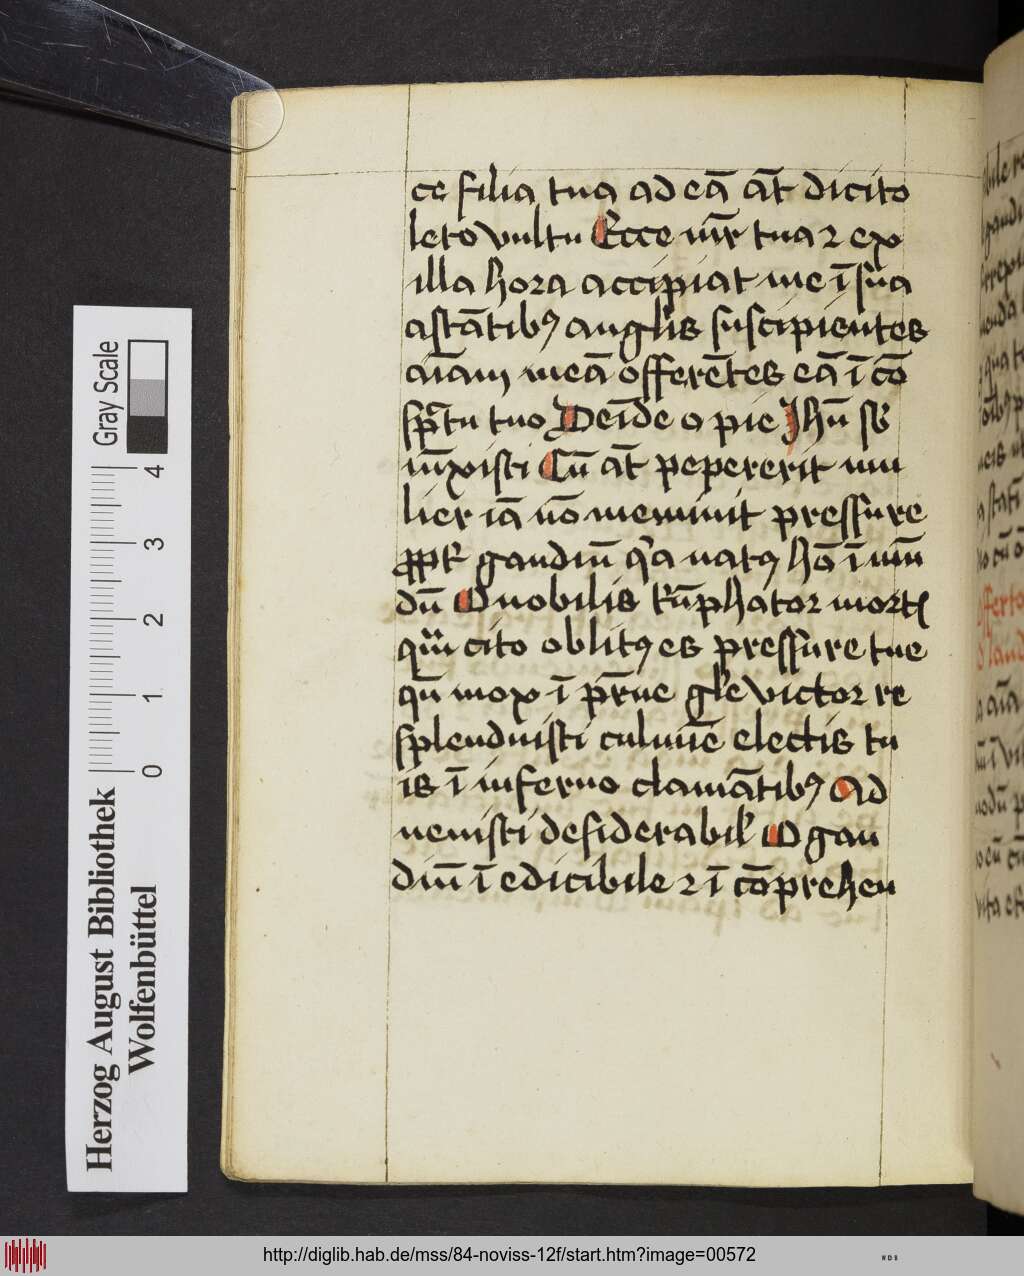 ce filia tua ad eā āt dicito
leto vultu Ecce mr̄ tua ⁊ ex
illa hora accipiat me ī sua
astātibꝯ angl̓is suscipientes
aīam meā offerētes eā ī cō
spc̄tu tuo Deīde o pie Jhū sb̓
iūxisti Cū āt pepererit mu
lier iā nō meminit pressure
ꝓpt̓ gaudiū qͥa natꝯ hō ī mū
dū O nobilis tͥūphator mortꝭ
qͣm cito oblitꝯ es pressure tue
qn̄ mox ī pr̄ne gl̓e victor re
splenduisti culmīe electis tu
is ī inferno clamātibꝯ Ad
uenisti desiderabil̓ O gau
diū īedicibile ⁊ īcōprehen
Gray Scale
0 1 2 3 4
Herzog August Bibliothek
Wolfenbüttel
http://diglib.hab.de/mss/84-noviss-12f/start.htm?image=00572